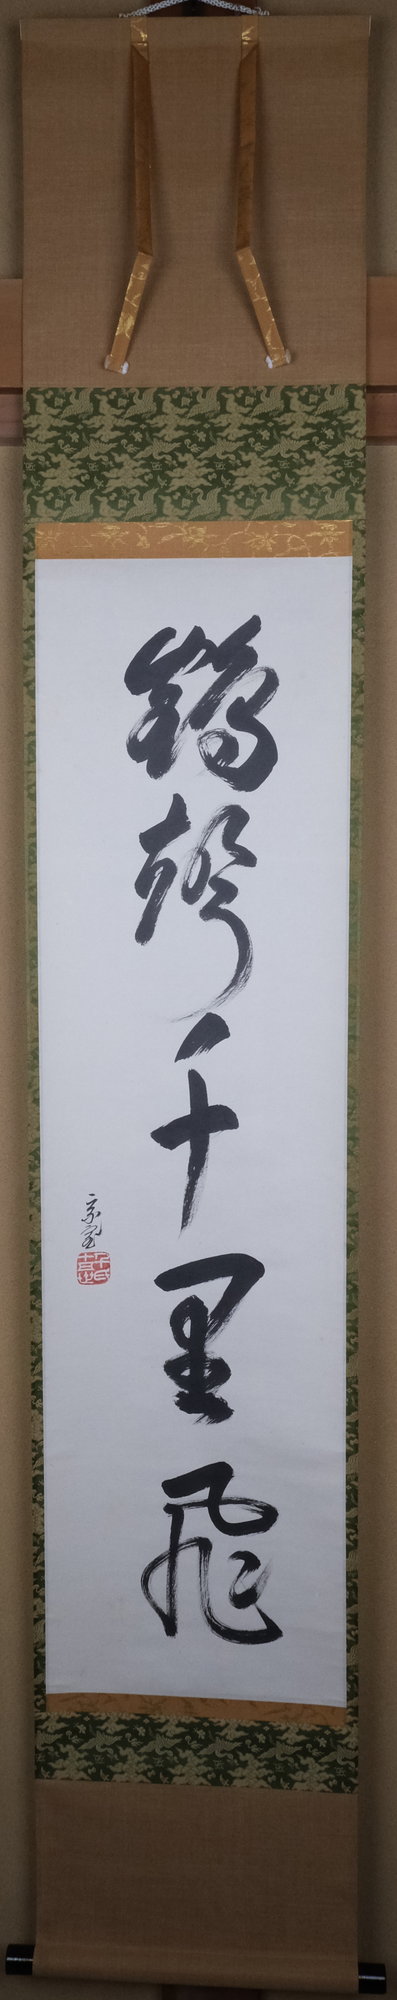 鶴聲千里飛
宗室